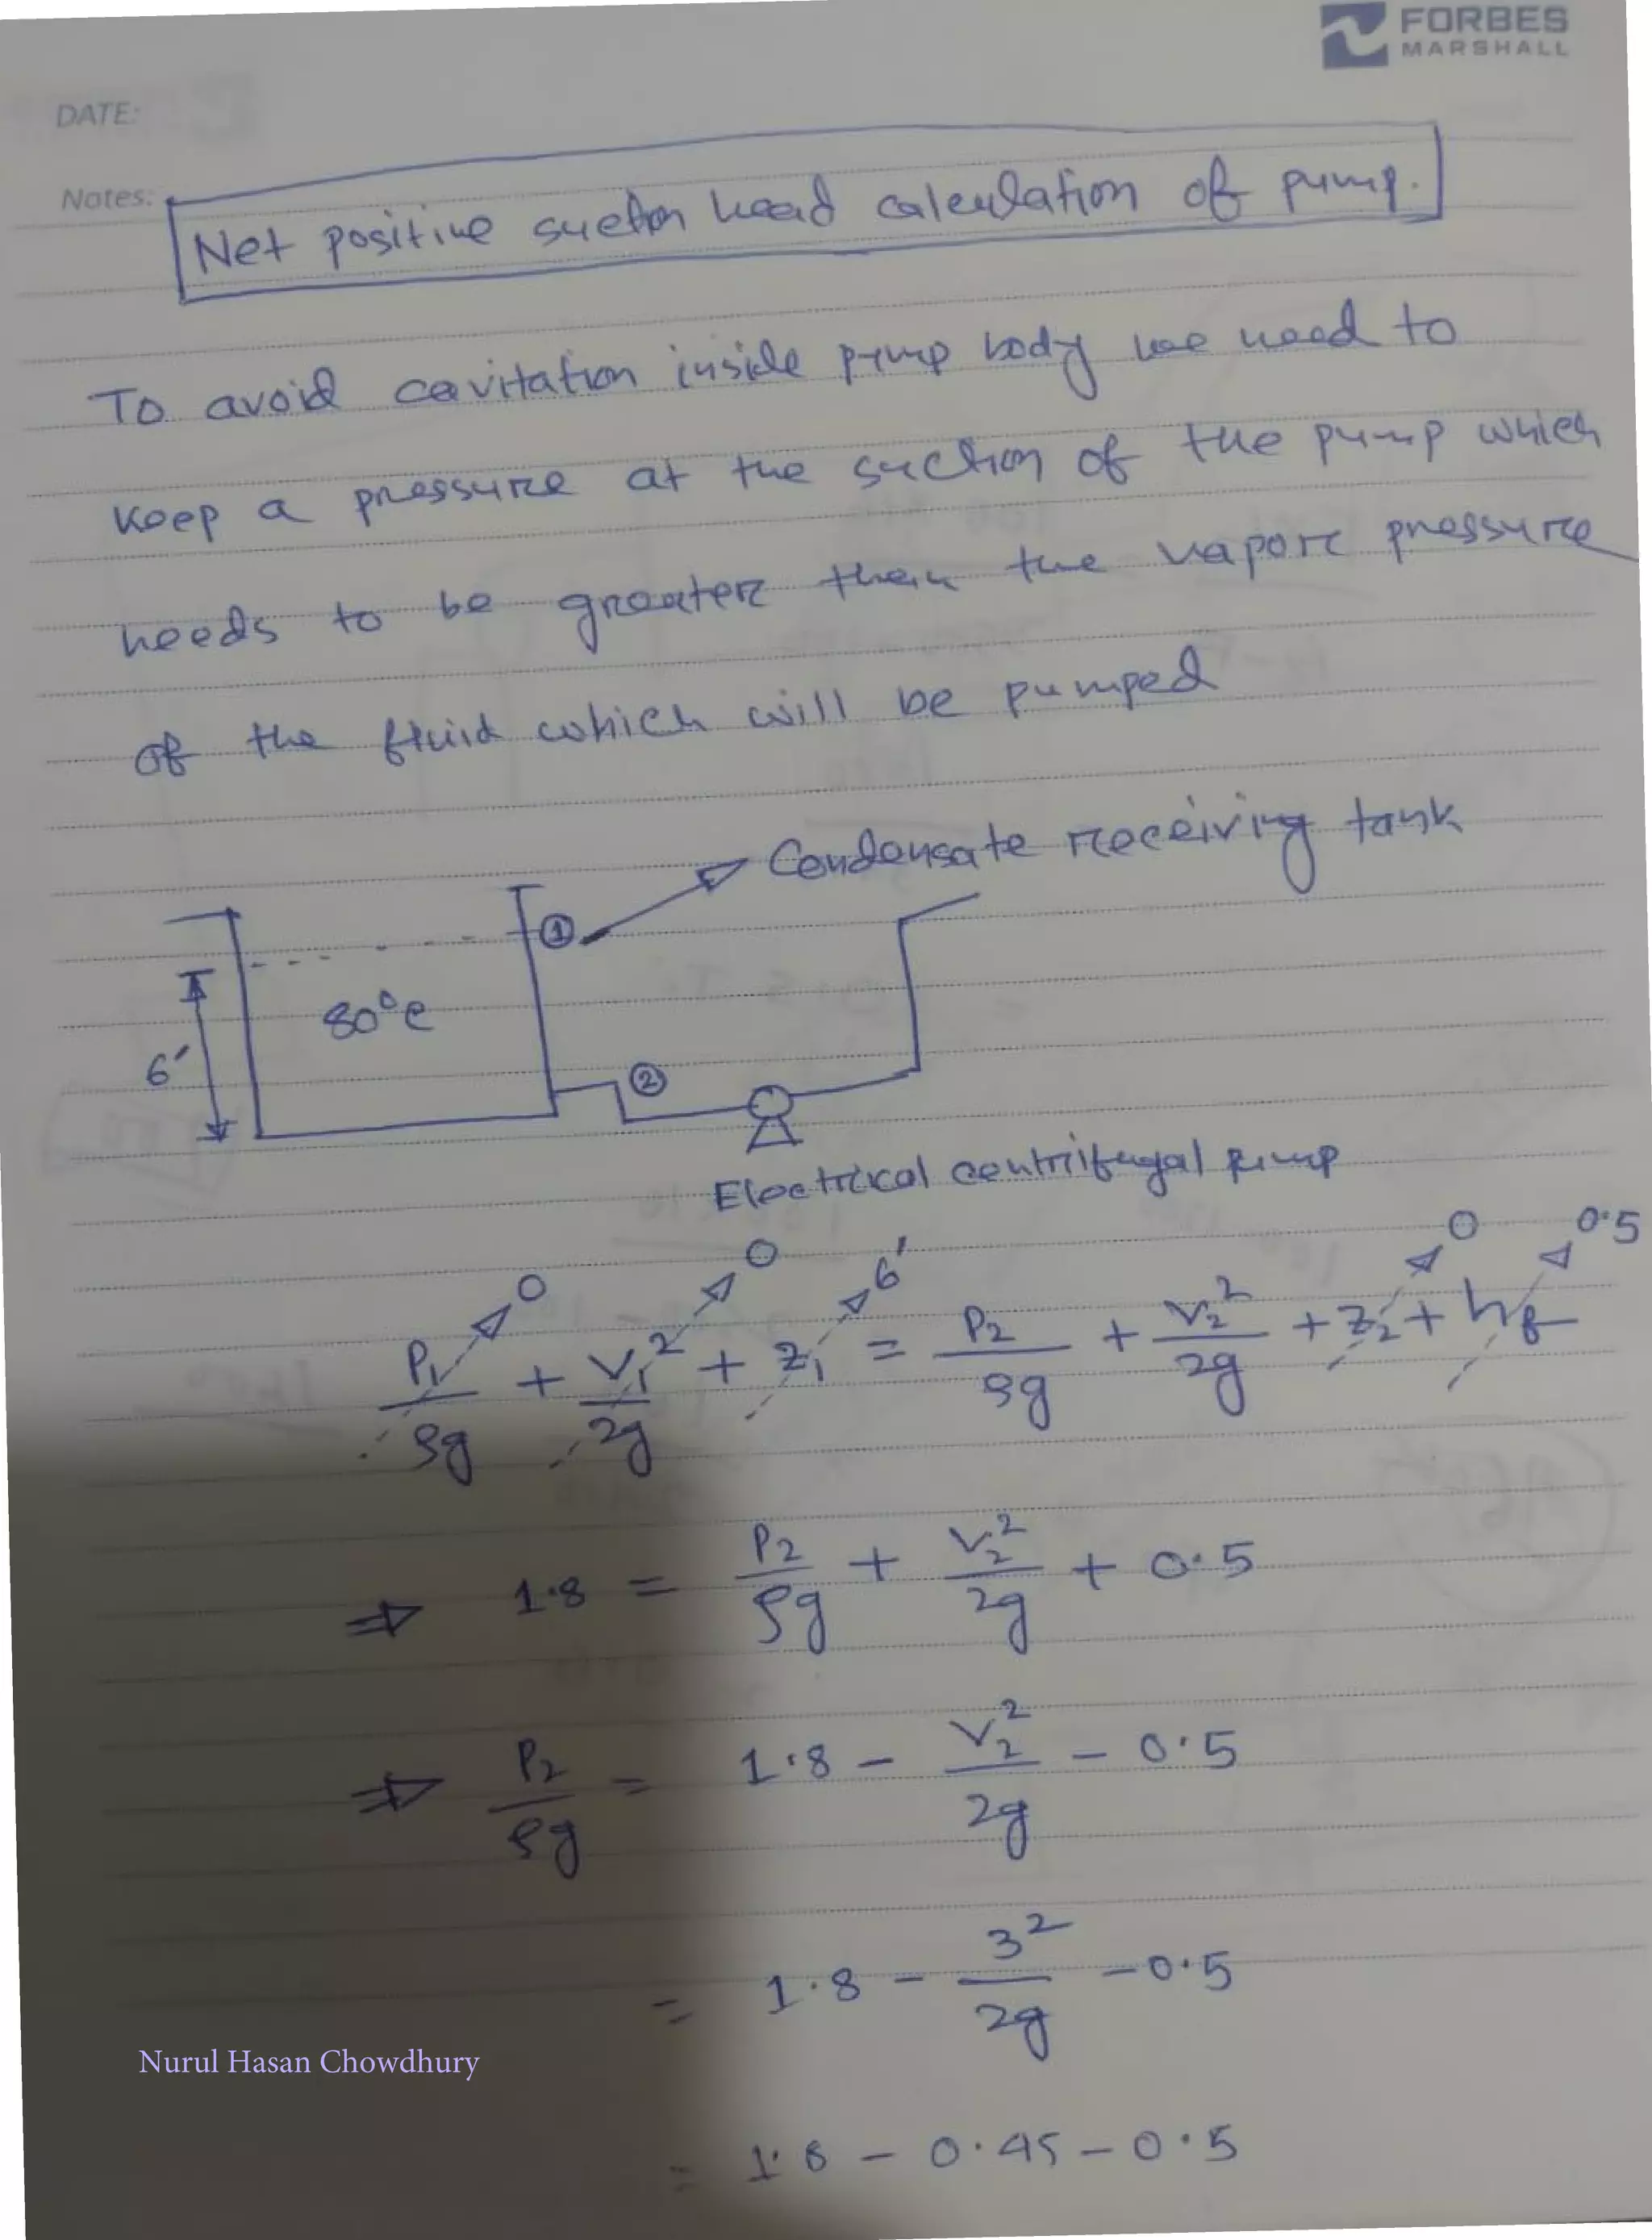 FORBES
MARSHALL
DATE:
Notes:
Net positive suction head calculation of pump.
To avoid cavitation inside pump body we need to
keep a pressure at the suction of the pump which
needs to be greater than the vapor pressure
of the fluid which will be pumped
Condensate receiving tank
①
80°c
6'
②
Electrical centrifugal pump
0 0 6' 0 0.5
P₁/ρg + V₁²/2g + Z₁ = P₂/ρg + V₂²/2g + Z₂ + hf
⇒ 1.8 = P₂/ρg + V₂²/2g + 0.5
⇒ P₂/ρg = 1.8 - V₂²/2g - 0.5
= 1.8 - 3²/2g - 0.5
Nurul Hasan Chowdhury
= 1.8 - 0.45 - 0.5